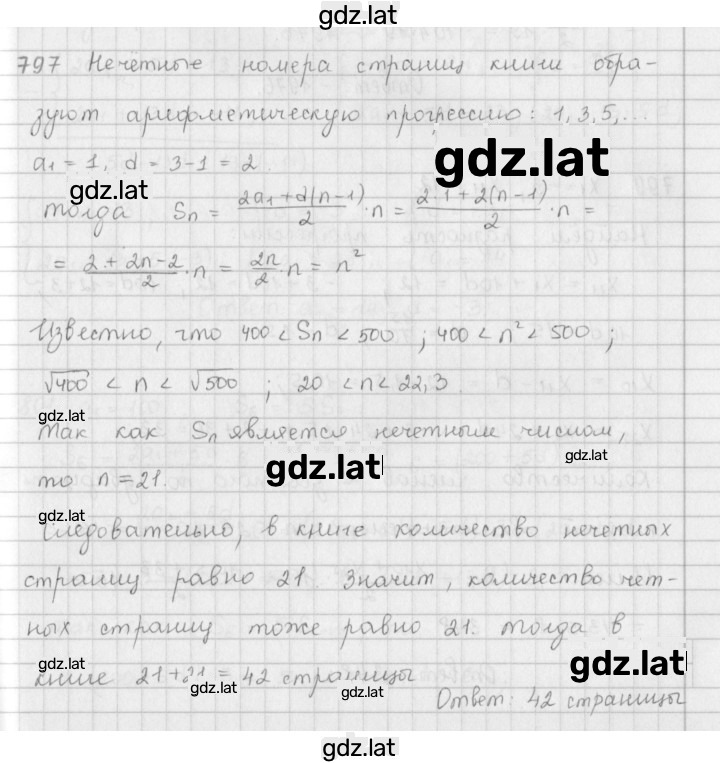 gdz.lat
797 Нечётные номера страниц книги обра-
зуют арифметическую прогрессию: 1, 3, 5, ...
a₁ = 1, d = 3-1 = 2.
gdz.lat
gdz.lat
тогда Sₙ = (2a₁+d(n-1))/2 · n = (2·1+2(n-1))/2 · n =
= (2+2n-2)/2 · n = 2n/2 · n = n²
Известно, что 400 < Sₙ < 500 ; 400 < n² < 500 ;
√400 < n < √500 ; 20 < n < 22,3.
gdz.lat
Так как Sₙ является нечетным числом,
gdz.lat
то n = 21.
gdz.lat
gdz.lat
Следовательно, в книге количество нечетных
страниц равно 21. Значит, количество чет-
ных страниц тоже равно 21. Тогда в
gdz.lat
gdz.lat
книге 21+21 = 42 страницы
gdz.lat
gdz.lat
Ответ: 42 страницы
gdz.lat